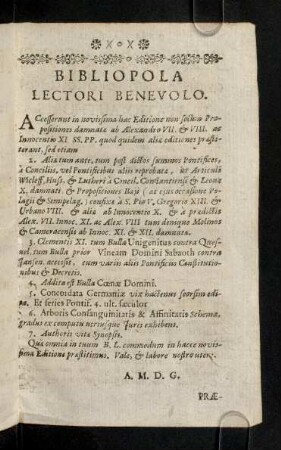 BIBLIOPOLA
LECTORI BENEVOLO.
ACcesserunt in novissima hac Editione non solùm Pro-
positiones damnatæ ab Alexandro VII. & VIII. ac
Innocentio XI. SS. PP. quod quidem aliæ editiones præsti-
terant, sed etiam
2. Aliæ tum ante, tum post dictos summos Pontifices,
à Conciliis, vel Pontificibus aliis reprobatæ, ut Articuli
Wicleff, Huss. & Lutheri à Concil. Constantiensi & Leone
X. damnati, & Propositiones Baji (ac ejus occasione Pe-
lagii & confixæ à S. Pio V. Gregorio XIII. &
Urbano VIII. & aliæ ab Innocentio X. & à prædictis
Alex. VII. Innoc. XI. ac Alex. VIII. tum denique Molinos
& Cameracensis ab Innoc. XI. & XII. damnatæ.
3. Clementis XI. tum Bulla Unigenitus contra Ques-
nel, tum Bulla prior Vineam Domini Sabaoth contra
Jansen. accessit, cum variis aliis Pontificiis Constitutio-
nibus & Decretis.
4. Addita est Bulla Cœnæ Domini.
5. Concordata Germaniæ viæ hactenus seorsim editæ,
Et series Pontif. 4. ult. sæculor.
6. Arboris Consanguinitatis & Affinitatis Schema,
gradus ex computu utriusque Juris exhibens.
7. Authoris vitæ Synopsis.
Quæ omnia in tuum B. L. commodum in hacce novis-
sima Editione præstitimus. Vale, & labore nostro utere.
A. M. D. G.
PRÆ-